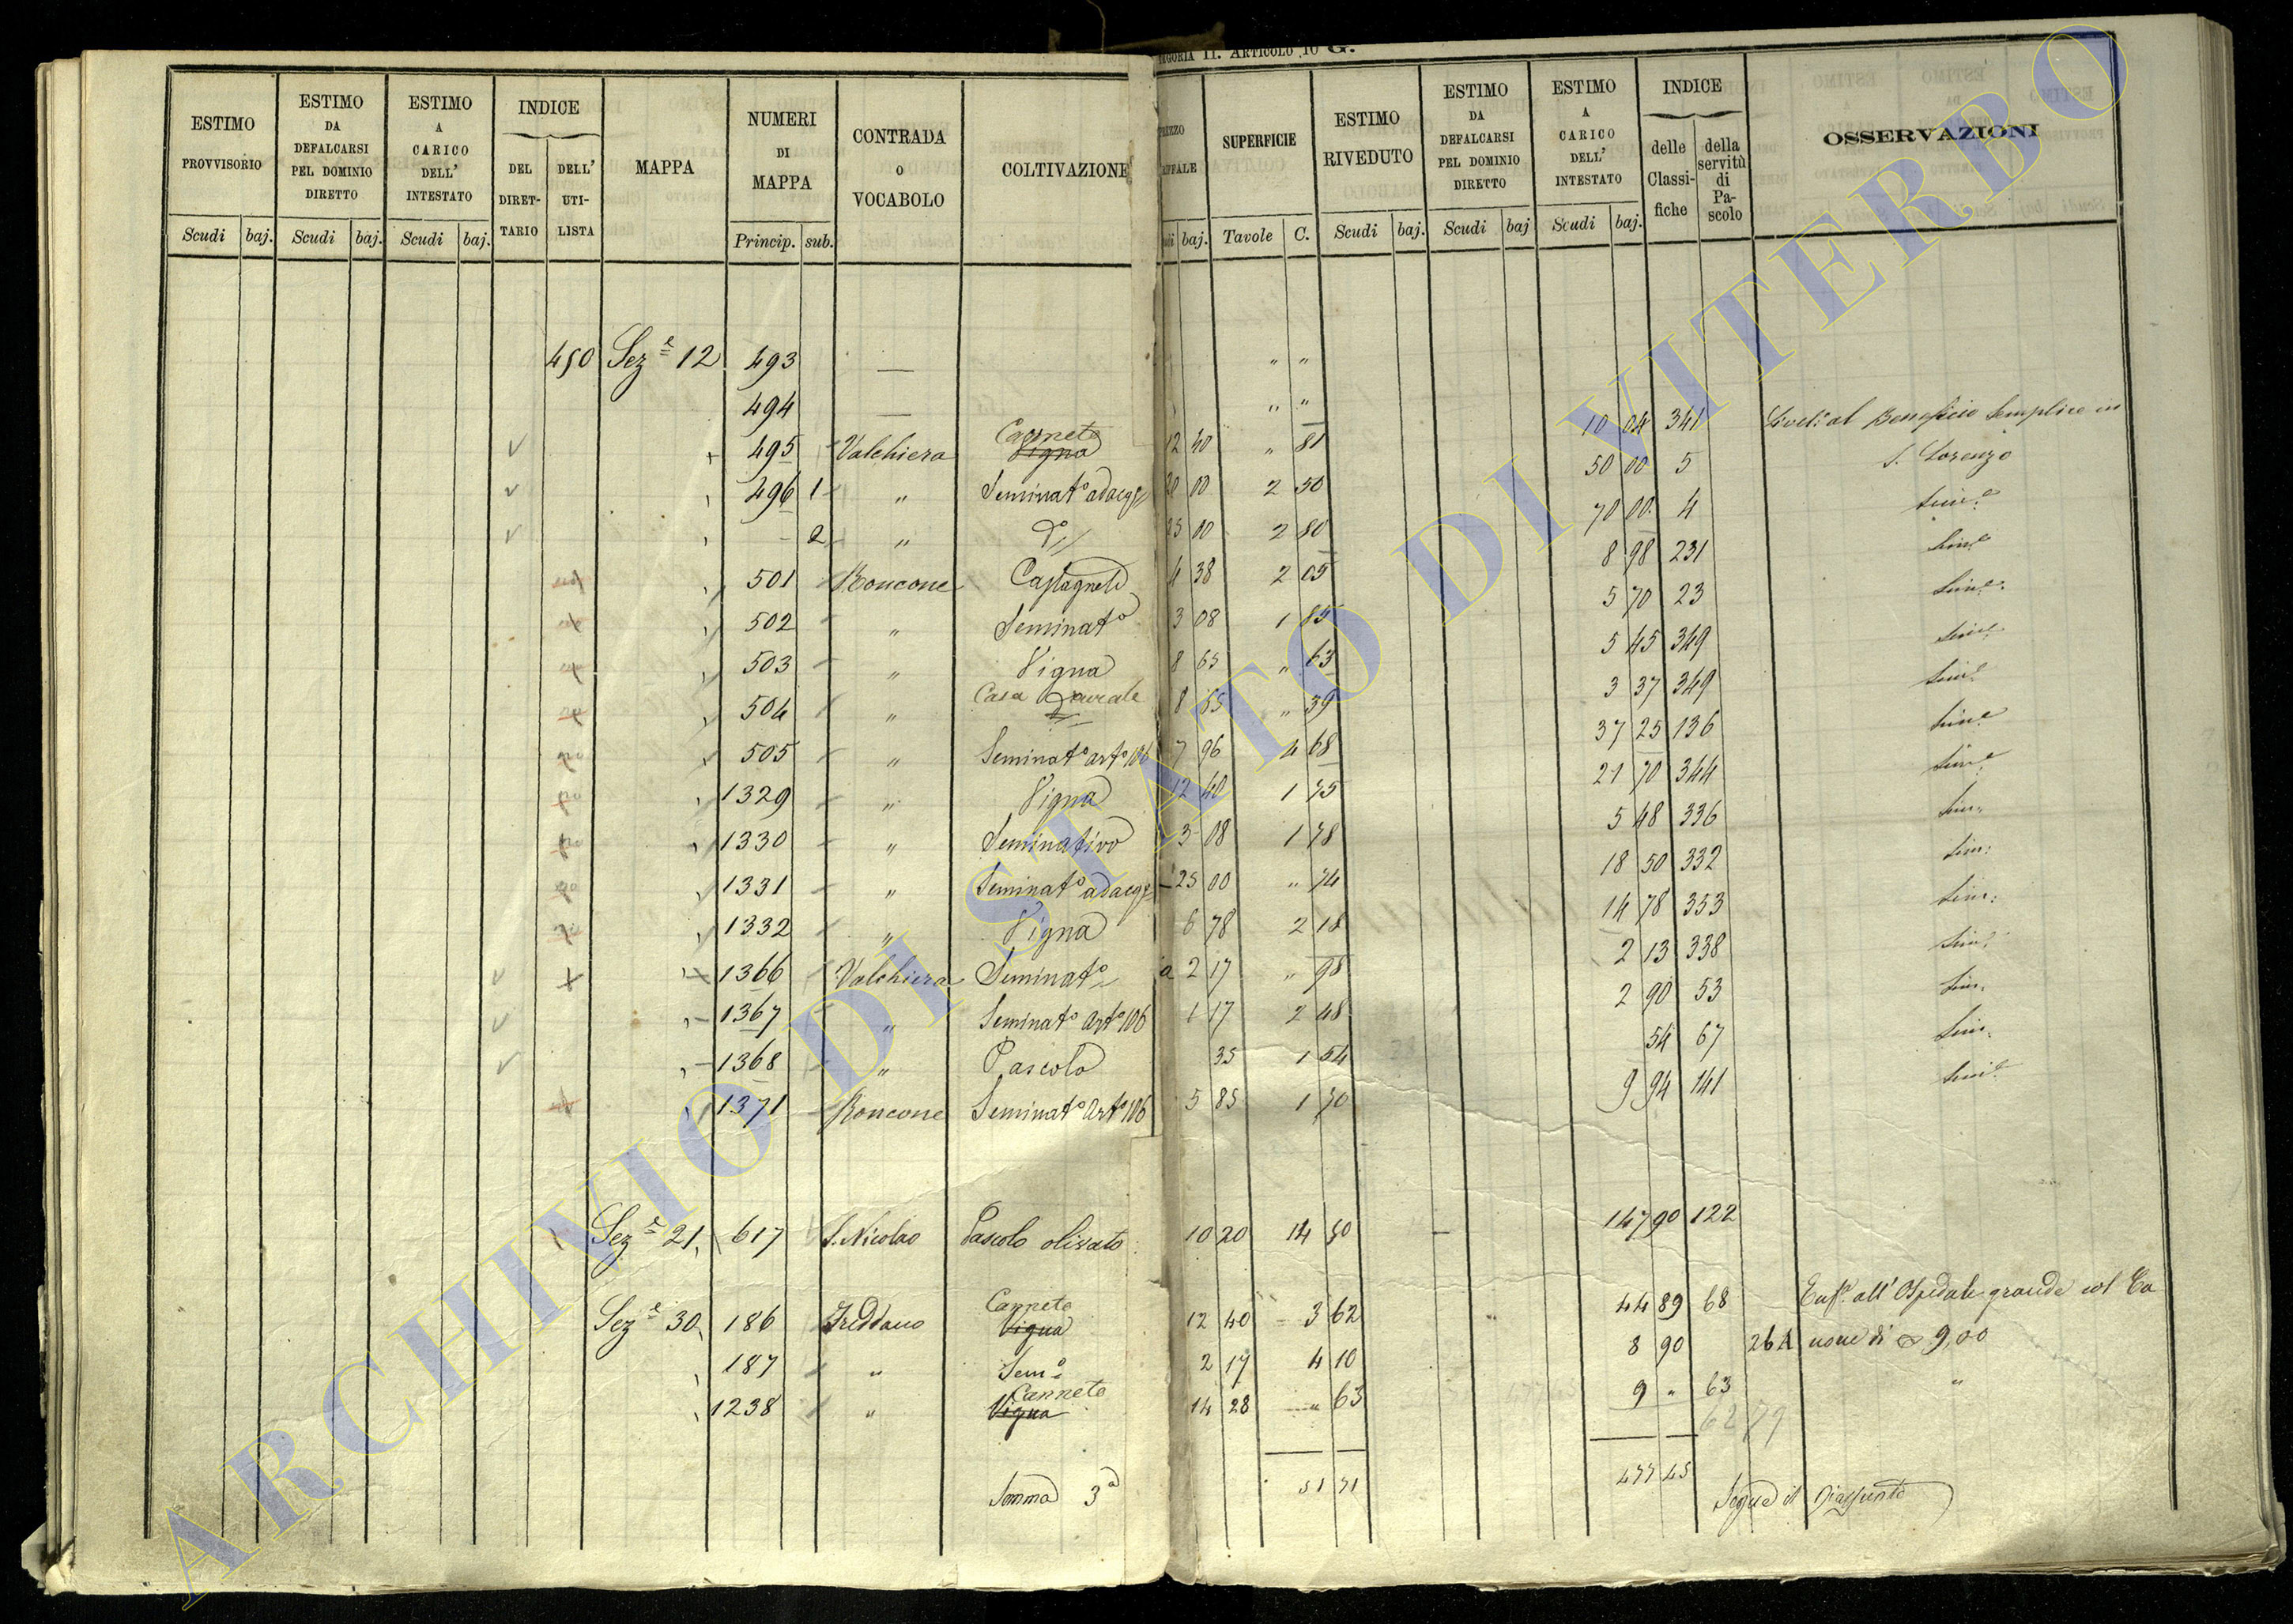 ARTICOLO 10 G.
ESTIMO PROVVISORIO Scudi baj.
ESTIMO DA DEFALCARSI PEL DOMINIO DIRETTO Scudi baj.
ESTIMO A CARICO DELL' INTESTATO Scudi baj.
INDICE DEL DIRET- TARIO DELL' UTI- LISTA
MAPPA
NUMERI DI MAPPA Princip. sub.
CONTRADA O VOCABOLO
COLTIVAZIONE
baj.
SUPERFICIE Tavole C.
ESTIMO RIVEDUTO Scudi baj.
ESTIMO DA DEFALCARSI PEL DOMINIO DIRETTO Scudi baj
ESTIMO A CARICO DELL' INTESTATO Scudi baj.
INDICE delle Classi- fiche della servitù di Pa- scolo
OSSERVAZIONI
450 Sez.e 12 493 — " "
494 — " "
Canneto
495 Valchiera Vigna 12 40 " 81 10 04 341 al Beneficio Semplice in
496 1 " Seminat.o adacq. 20 00 2 50 50 00 5 S. Lorenzo
2 " d.o 25 00 2 80 70 00 4 Sim.e
501 Roncone Castagneto 4 38 2 05 8 98 231 Sim.e
502 " Seminat.o 3 08 1 85 5 70 23 Sim.e
503 " Vigna 8 65 " 63 5 45 349 Sim.e
504 " Casa 8 65 " 39 3 37 349 Sim.e
505 " Seminat.o art.o 106 7 96 4 68 37 25 136 Sim.e
1329 " Vigna 12 40 1 75 21 70 344 Sim.e
1330 " Seminativo 3 08 1 78 5 48 336 Sim.
1331 " Seminat.o adacq. 25 00 " 74 18 50 332 Sim.
1332 " Vigna 6 78 2 18 14 78 353 Sim.
1366 Valchiera Seminat.o a 2 17 " 98 2 13 338 Sim.
1367 " Seminat.o Art.o 106 1 17 2 48 2 90 53 Sim.
1368 " Pascolo 35 1 54 54 67 Sim.
1371 Roncone Seminat.o Art.o 106 5 85 1 70 9 94 141 Sim.e
Sez.e 21 617 S. Nicolao Pascolo olivato 10 20 14 50 — 147 90 122
Canneto
Sez.e 30 186 Freddano Vigna 12 40 3 62 44 89 68 Enf. all' Ospedale grande col Ca
187 " Sem.o 2 17 4 10 8 90 26A none di 9,00
Canneto
1238 " Vigna 14 28 " 63 9 " 63 "
62 79
Somma 3a 51 71 477 45
Segue il Riassunto
ARCHIVIO DI STATO DI VITERBO